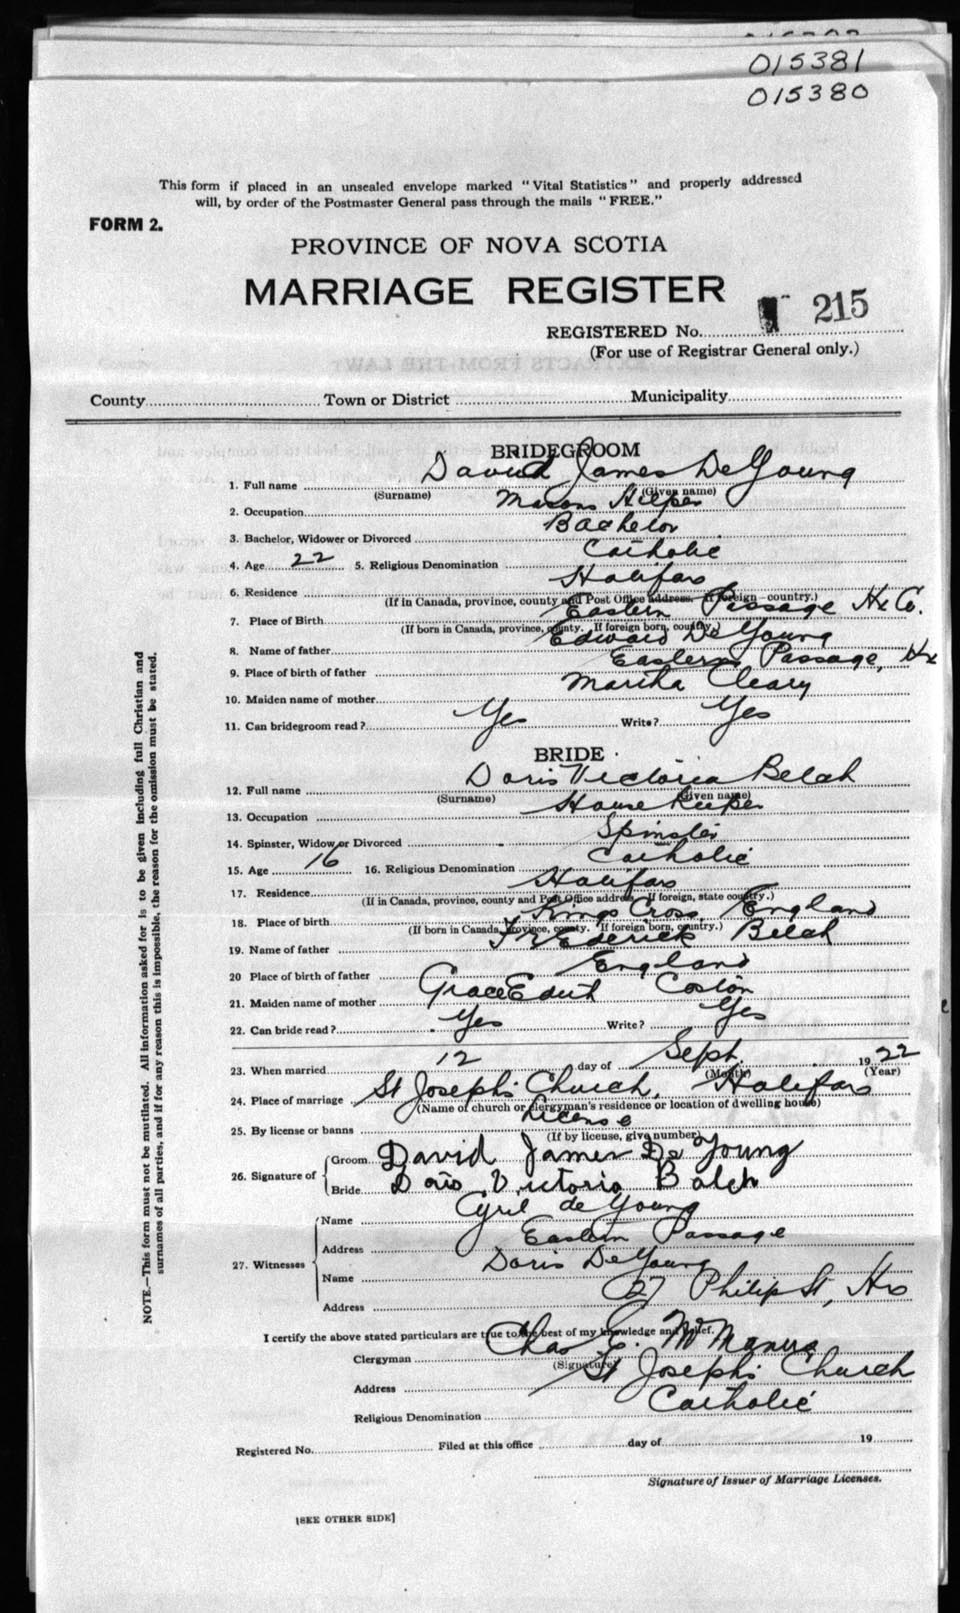 015381
015380
This form if placed in an unsealed envelope marked "Vital Statistics" and properly addressed
will, by order of the Postmaster General pass through the mails "FREE."
FORM 2.
PROVINCE OF NOVA SCOTIA
MARRIAGE REGISTER
215
REGISTERED No.
(For use of Registrar General only.)
County Town or District Municipality
BRIDEGROOM
1. Full name David James DeYoung
(Surname) (Given name)
2. Occupation Masons Helper
3. Bachelor, Widower or Divorced Bachelor
4. Age 22 5. Religious Denomination Catholic
6. Residence Halifax
(If in Canada, province, county and Post Office address. If foreign country.)
7. Place of Birth Eastern Passage Hx Co.
(If born in Canada, province, county. If foreign born, country.)
8. Name of father Edward DeYoung
9. Place of birth of father Eastern Passage, Hx
10. Maiden name of mother Martha Cleary
11. Can bridegroom read? Yes Write? Yes
BRIDE
12. Full name Doris Victoria Belch
(Surname) (Given name)
13. Occupation House Keeper
14. Spinster, Widow or Divorced Spinster
15. Age 16 16. Religious Denomination Catholic
17. Residence Halifax
(If in Canada, province, county and Post Office address. If foreign, state country.)
18. Place of birth Kings Cross, England
(If born in Canada, province, county. If foreign born, country.)
19. Name of father Frederick Belch
20 Place of birth of father England
21. Maiden name of mother Grace Edith Coston
22. Can bride read? Yes Write? Yes
23. When married 12 day of Sept. 1922
(Month) (Year)
24. Place of marriage St Joseph's Church, Halifax
(Name of church or clergyman's residence or location of dwelling house)
25. By license or banns License
(If by license, give number)
26. Signature of
Groom David James De Young
Bride Doris Victoria Balch
27. Witnesses
Name Cyril de Young
Address Eastern Passage
Name Doris DeYoung
Address 27 Philip St, Hx
I certify the above stated particulars are true to the best of my knowledge and belief.
Clergyman Chas E. McManus
(Signature)
Address St Joseph's Church
Religious Denomination Catholic
Registered No. Filed at this office day of 19
Signature of Issuer of Marriage Licenses.
[SEE OTHER SIDE]
NOTE.—This form must not be mutilated. All information asked for is to be given including full Christian and
surnames of all parties, and if for any reason this is impossible, the reason for the omission must be stated.